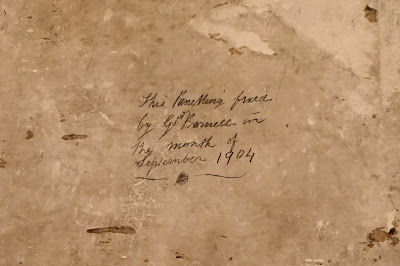 This Panelling fixed
by Geo Barnett in
the month of
September 1904